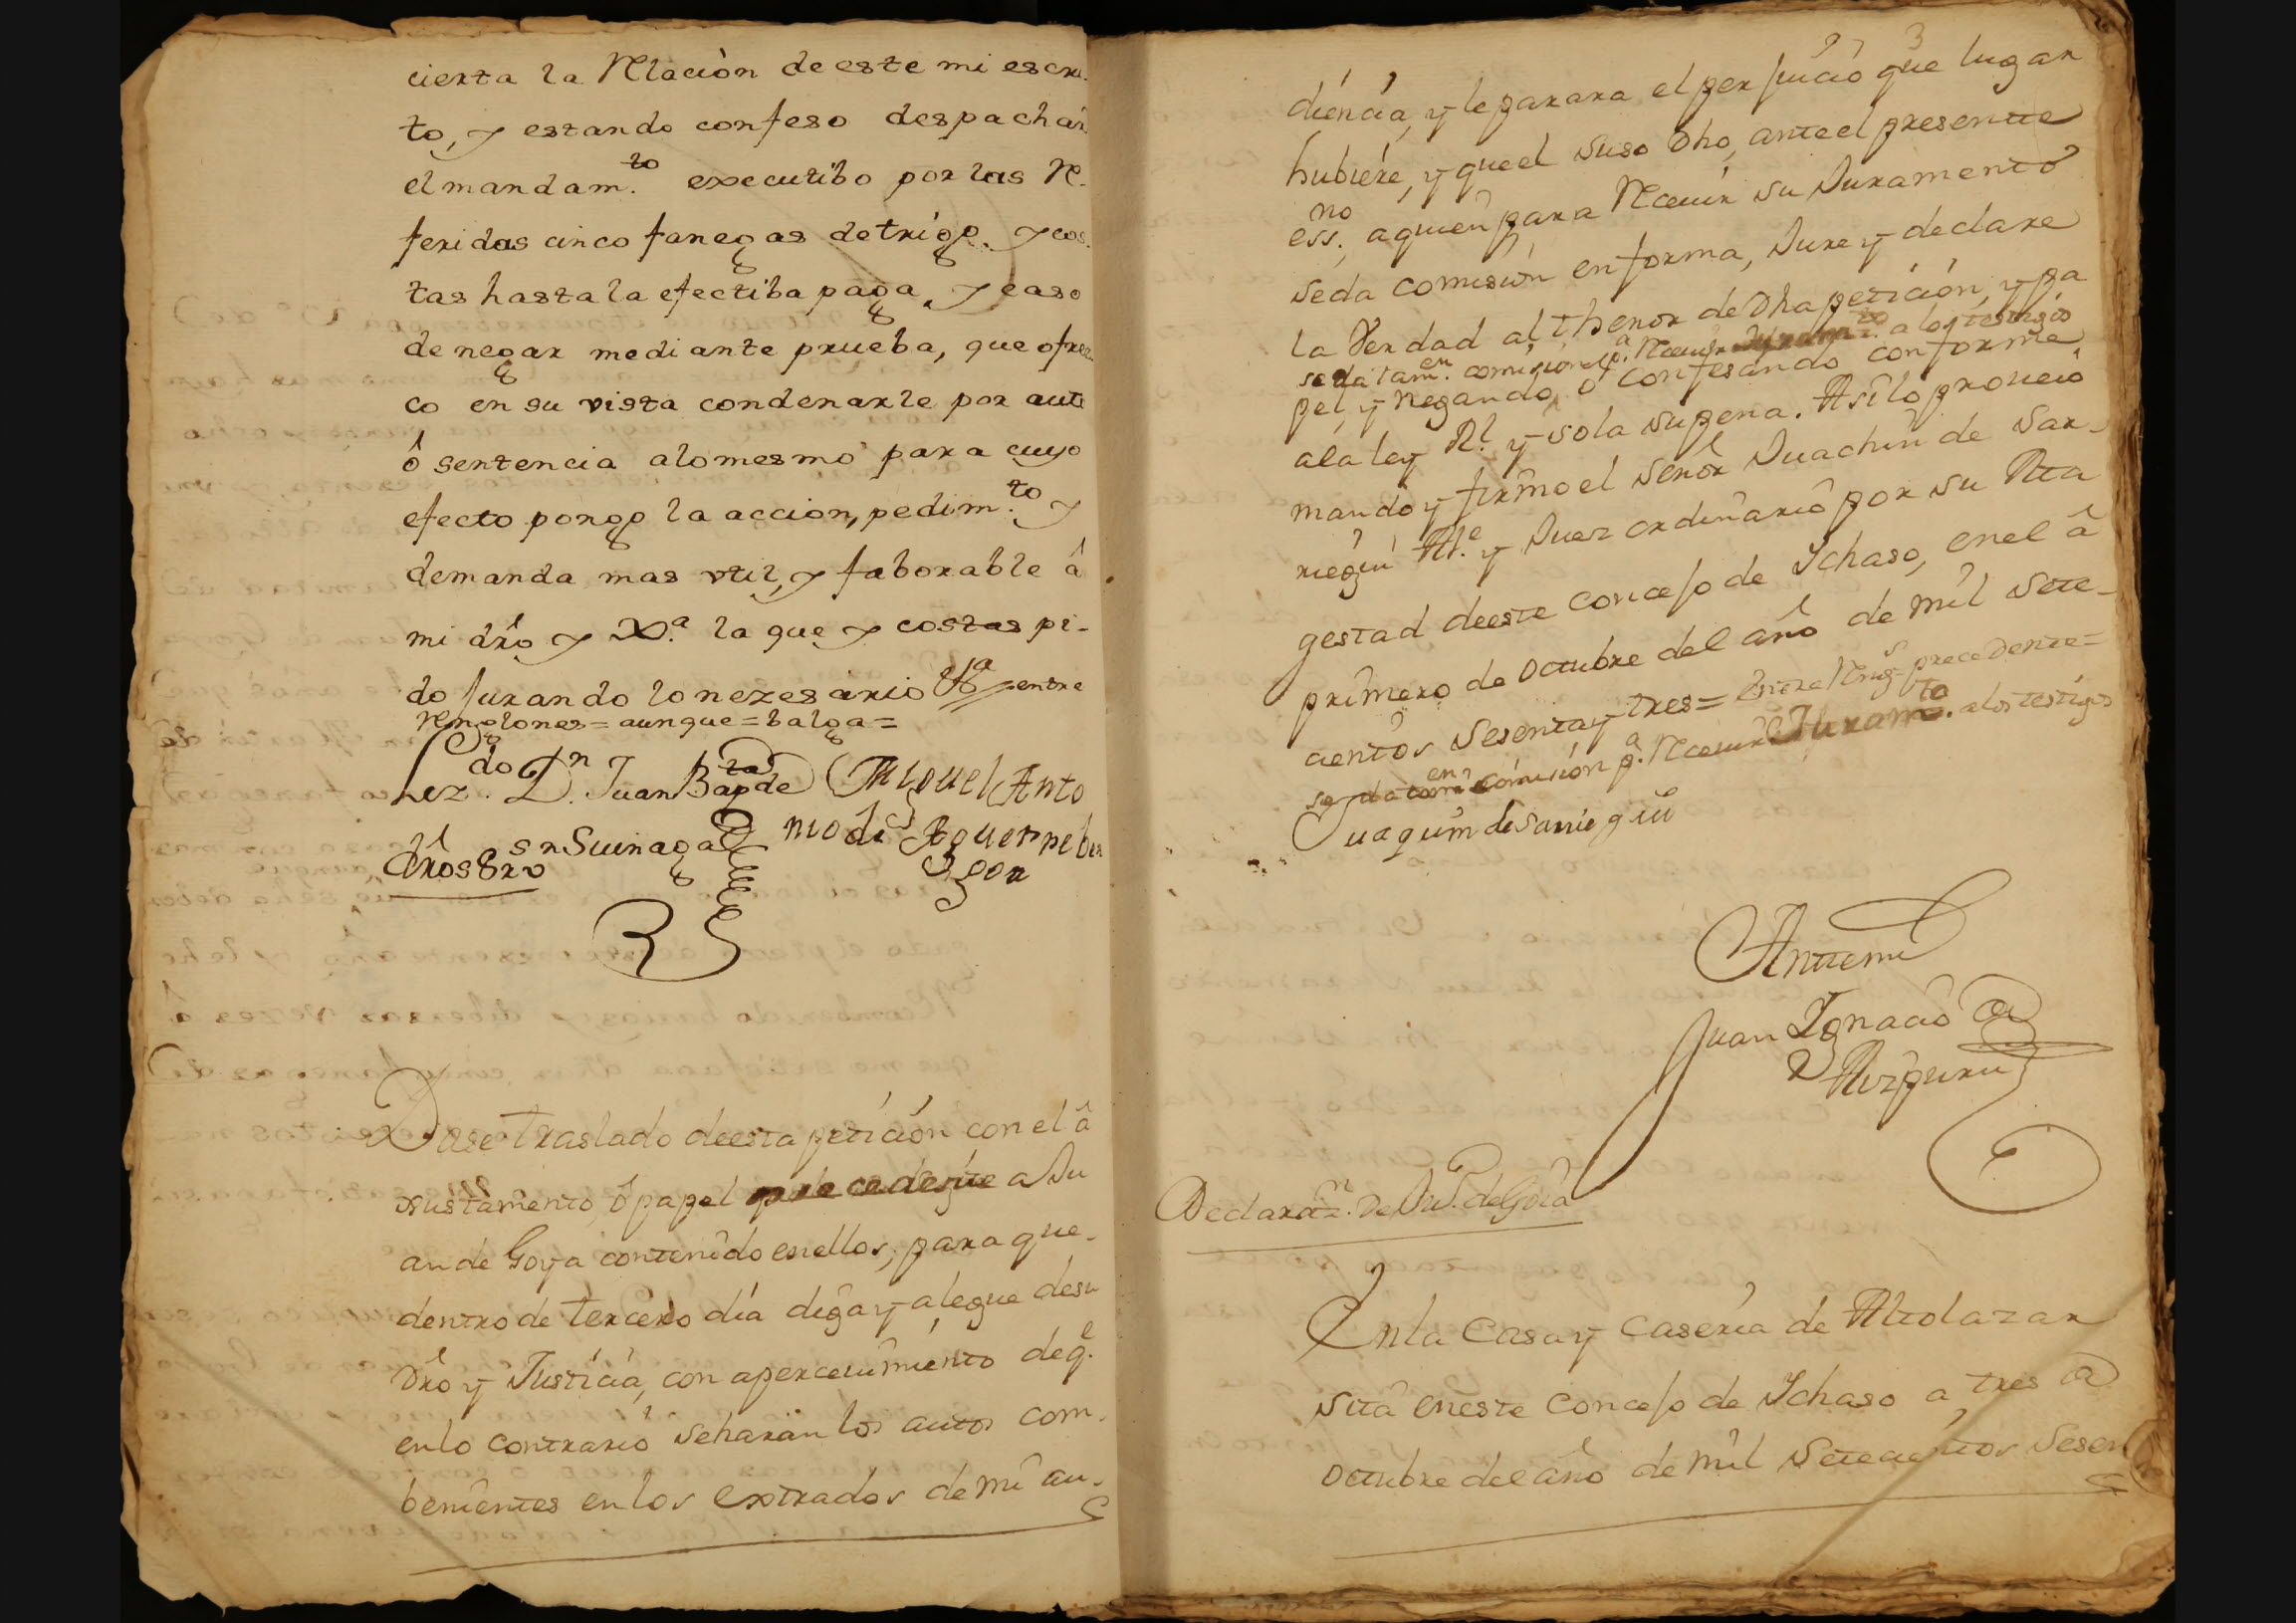 cierta la Relaciòn de este mi escri
to, y estando confeso despachar
el mandam.to executibo por las Re
feridas cinco fanegas de trigo, y cos
tas hasta la efectiba paga, y caso
de negar mediante prueba, que ofrez
co en su vista condenarle por auto
ô sentencia a lo mesmo para cuyo
efecto pongo la accion, pedim.to y
demanda mas vtil, y faborable â
mi dr̂o y X.a la que y costas pi-
do Jurando lo nezesario V.a entre
Renglones = aunque = balga =
Lez.do D.n Juan Bap.ta de Miguel Anto
sn Suinaga nio de Aguerre be
Dr̂os 8 Rv
gon
Dase traslado de esta petición con el â
xustamento, ô papel precedente a Ju
an de Goya contenido en ellos, para que
dentro de tercero día diga y alegue de su
Dr̂o y Justicia, con apercevimiento de q.e
en lo contrario se harán los autos com
benientes en los extrados de mi au-
3
diencia, y le parara el perjuicio que lugar
hubiére, y que el suso Dho, ante el presente
ess.no, a quien para Recevir su Juramento
se da comisión en forma, Jure y declare
la Verdad al thenor de Dha petición, y pa
se da tam.en comision p.a Recevir Juram.to a los testigos
pel, y negando, ó confesando conforme
a la ley R.l y sola su pena. Asi lo proveio
mando y firmo el Señor Juachin de Sar-
riegui Al.e y Juez ordinario por su Ma
gestad de este concejo de Ychaso, en el â
primero de Octubre del año de mil Sete-
cientos Sesenta y tres = Entre Reng.s precedente =
se da tam.en comisión p.a Recevir Juram.to a los testigos
Juaquim de Sarriegui
Ante mi
Juan Ignacio de
Aizpuru
Declaraz.n de Ju.o de Goia
En la Casa y Caseria de Altolazar
Sita en este Concejo de Ychaso a tres de
Octubre del año de mil Setecientos Sesen